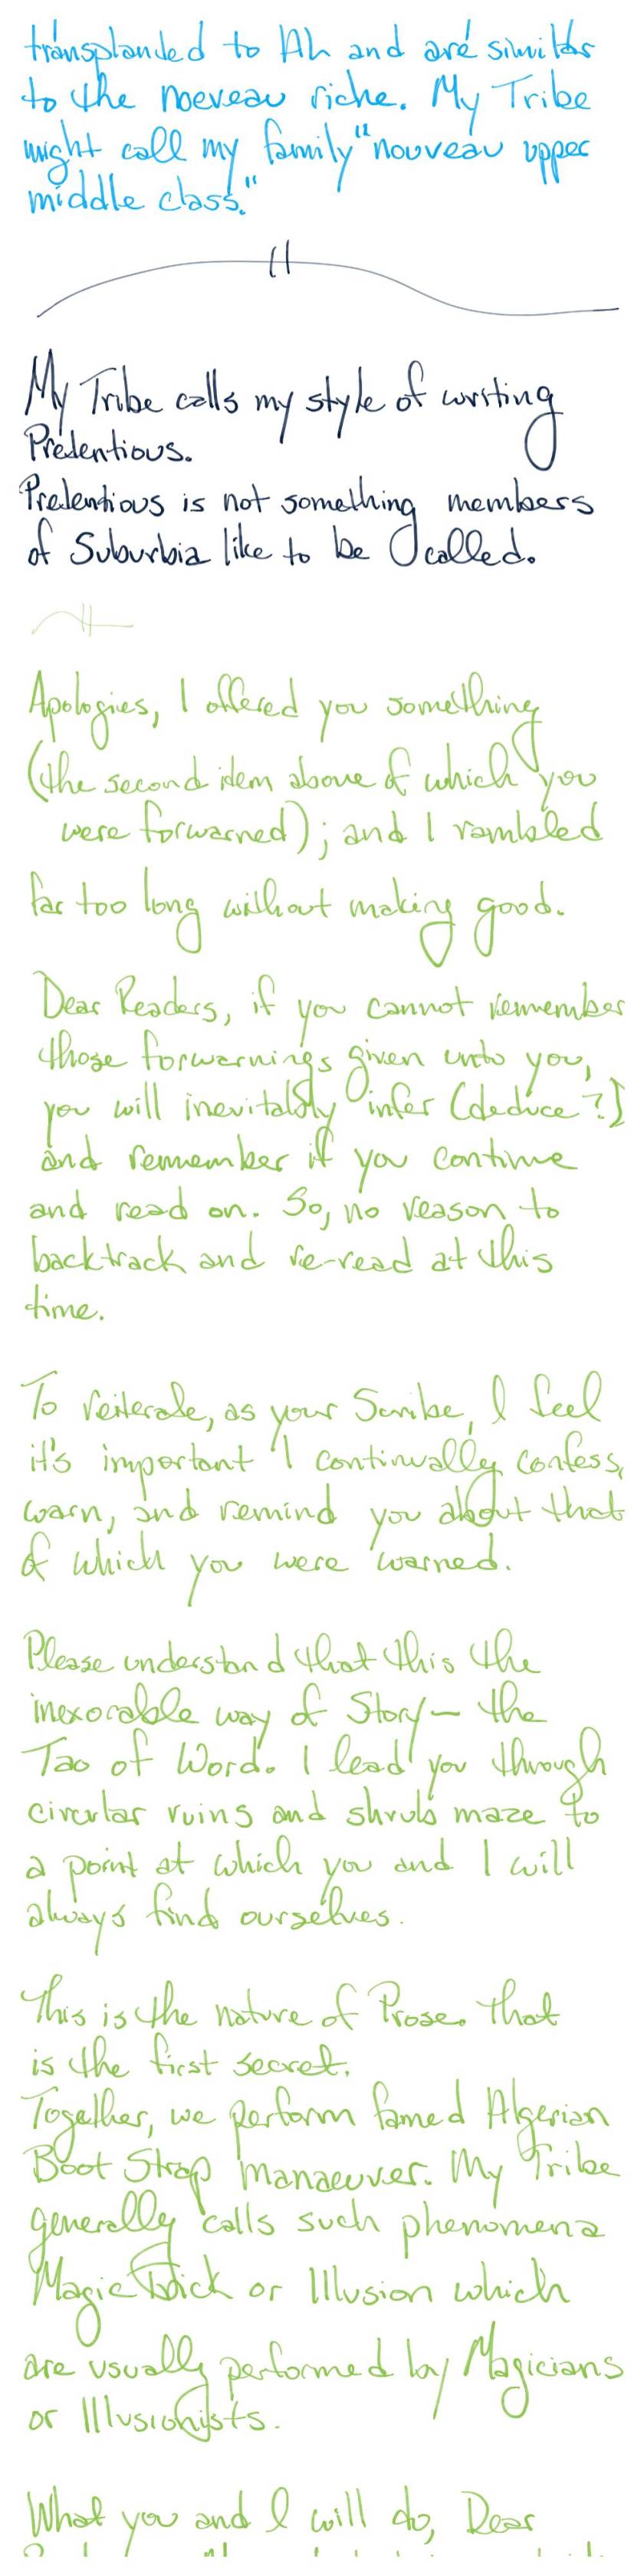 transplanded to Ah and are similar
to the noeveau riche. My Tribe
might call my family "nouveau upper
middle class."
My Tribe calls my style of writing
Pretentious.
Pretentious is not something members
of Suburbia like to be called.
Apologies, I offered you something
(the second idem above of which you
were forwarned); and I rambled
far too long without making good.
Dear Readers, if you cannot remember
those forwarnings given unto you,
you will inevitably infer (deduce?)
and remember if you continue
and read on. So, no reason to
backtrack and re-read at this
time.
To reiterate, as your Scribe, I feel
it's important I continually confess,
warn, and remind you about that
of which you were warned.
Please understand that this the
inexorable way of Story - the
Tao of Word. I lead you through
circular ruins and shrub maze to
a point at which you and I will
always find ourselves.
This is the nature of Prose. That
is the first secret.
Together, we perform famed Algerian
Boot Strap manaeuver. My Tribe
generally calls such phenomena
Magic Trick or Illusion which
are usually performed by Magicians
or Illusionists.
What you and I will do, Dear